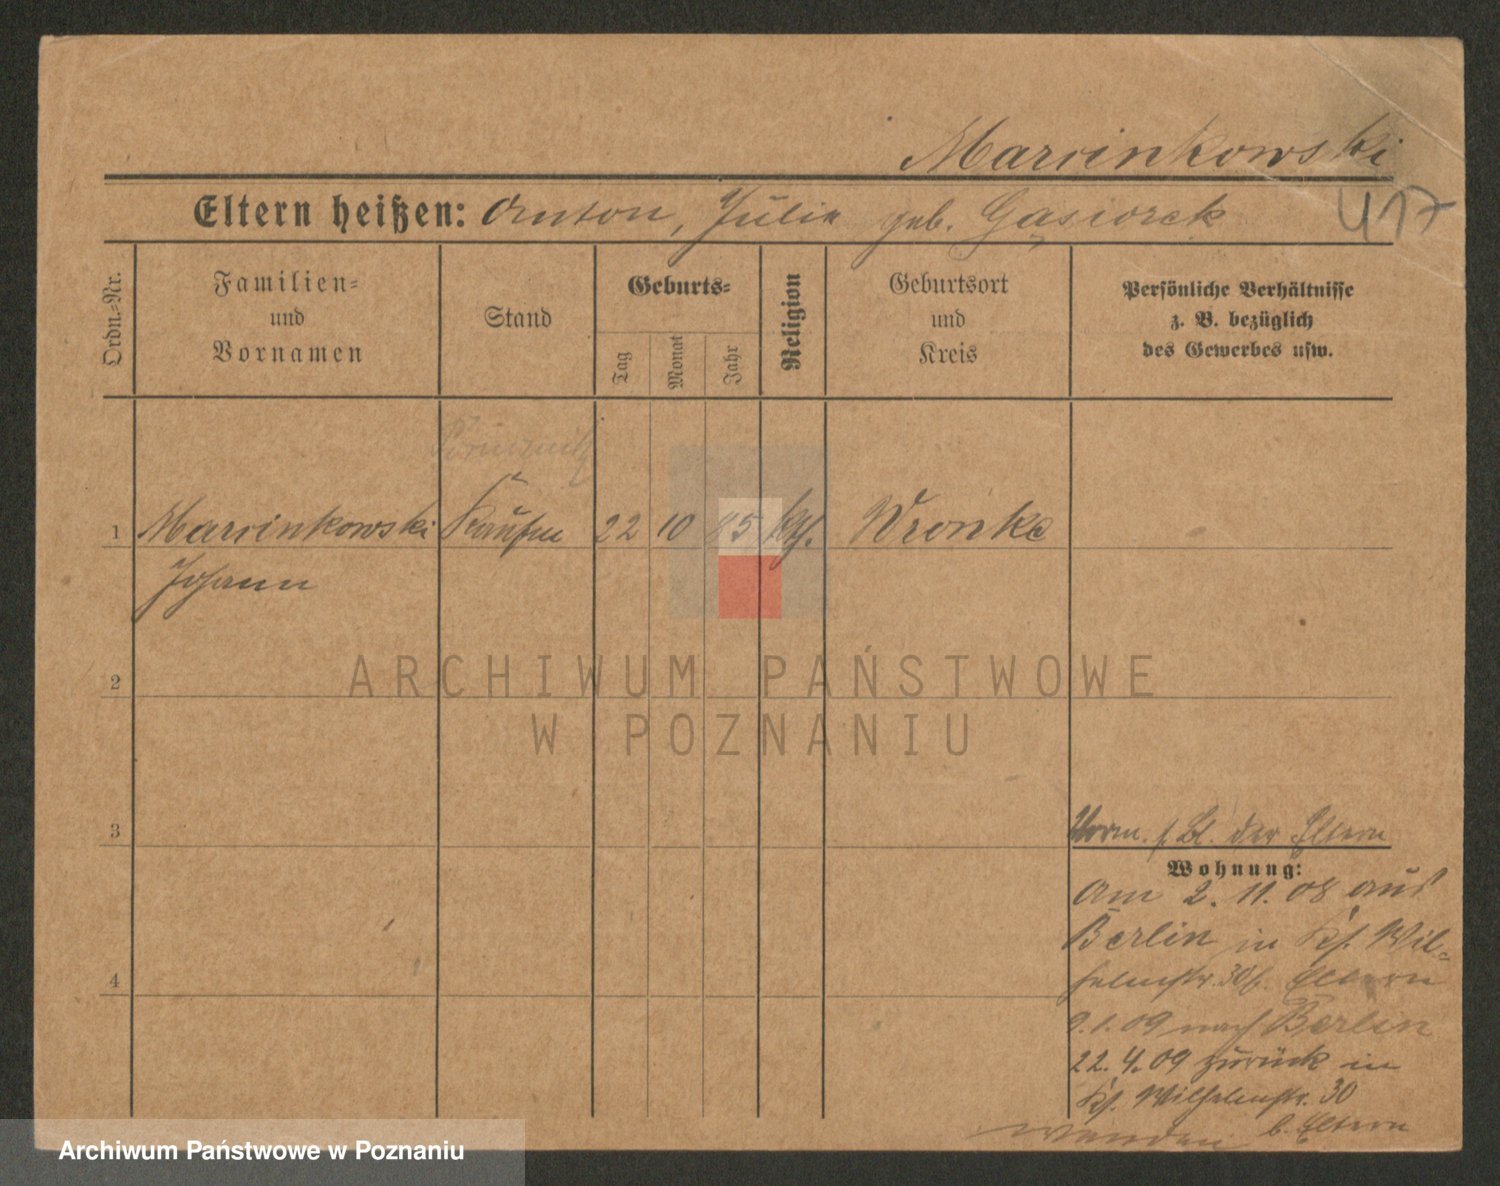 Marcinkowski
417
Eltern heißen: Anton, Julie geb. Gąsiorek
Ordn.-Nr.
Familien-
und
Vornamen
Stand
Geburts-
Tag
Monat
Jahr
Religion
Geburtsort
und
Kreis
Persönliche Verhältnisse
z. B. bezüglich
des Gewerbes usw.
1 Marcinkowski 22 10 85 kth. Wronke
Johann
2
ARCHIWUM PAŃSTWOWE
W POZNANIU
3
Vorm. f. Bl. der Eltern
Wohnung:
Am 2. 11. 08 aus
Berlin in Wil-
helmstr. 30 b. Eltern
9.1.09 nach Berlin
22.4.09 zurück in
Wilhelmstr. 30
b. Eltern
wenden
4
Archiwum Państwowe w Poznaniu